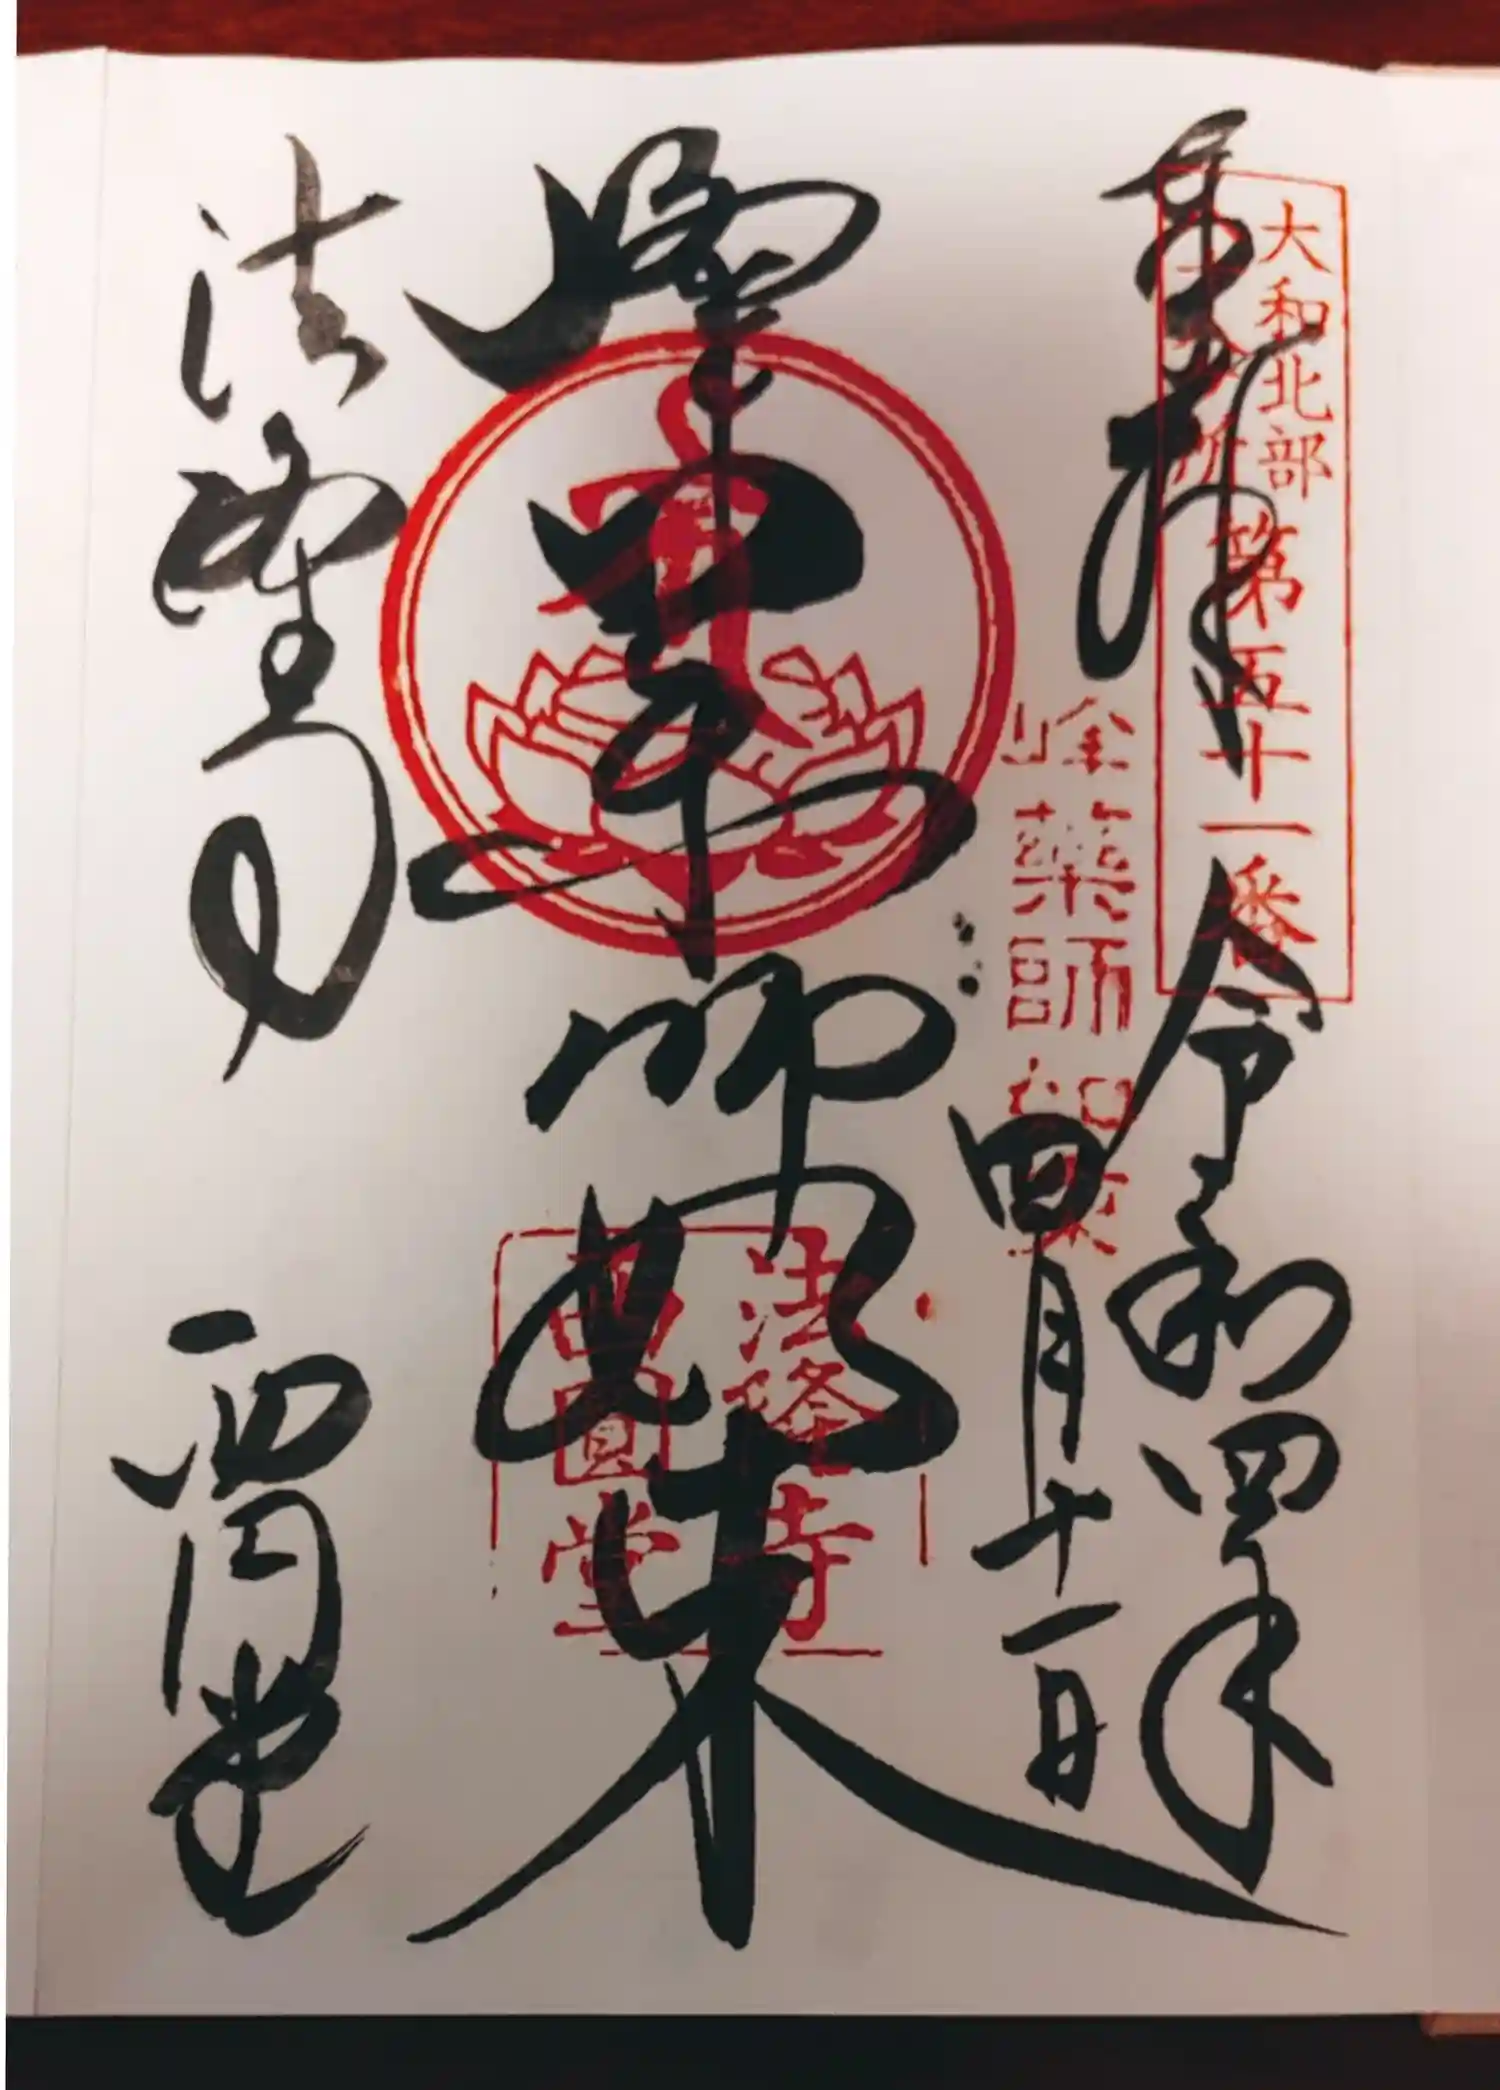 奉拝
大和北部
八十八ヶ所
第五十一番
令和四年
四月十一日
峰藥師如来
峰薬師如来
法隆寺
西圓堂
法隆寺
西円堂